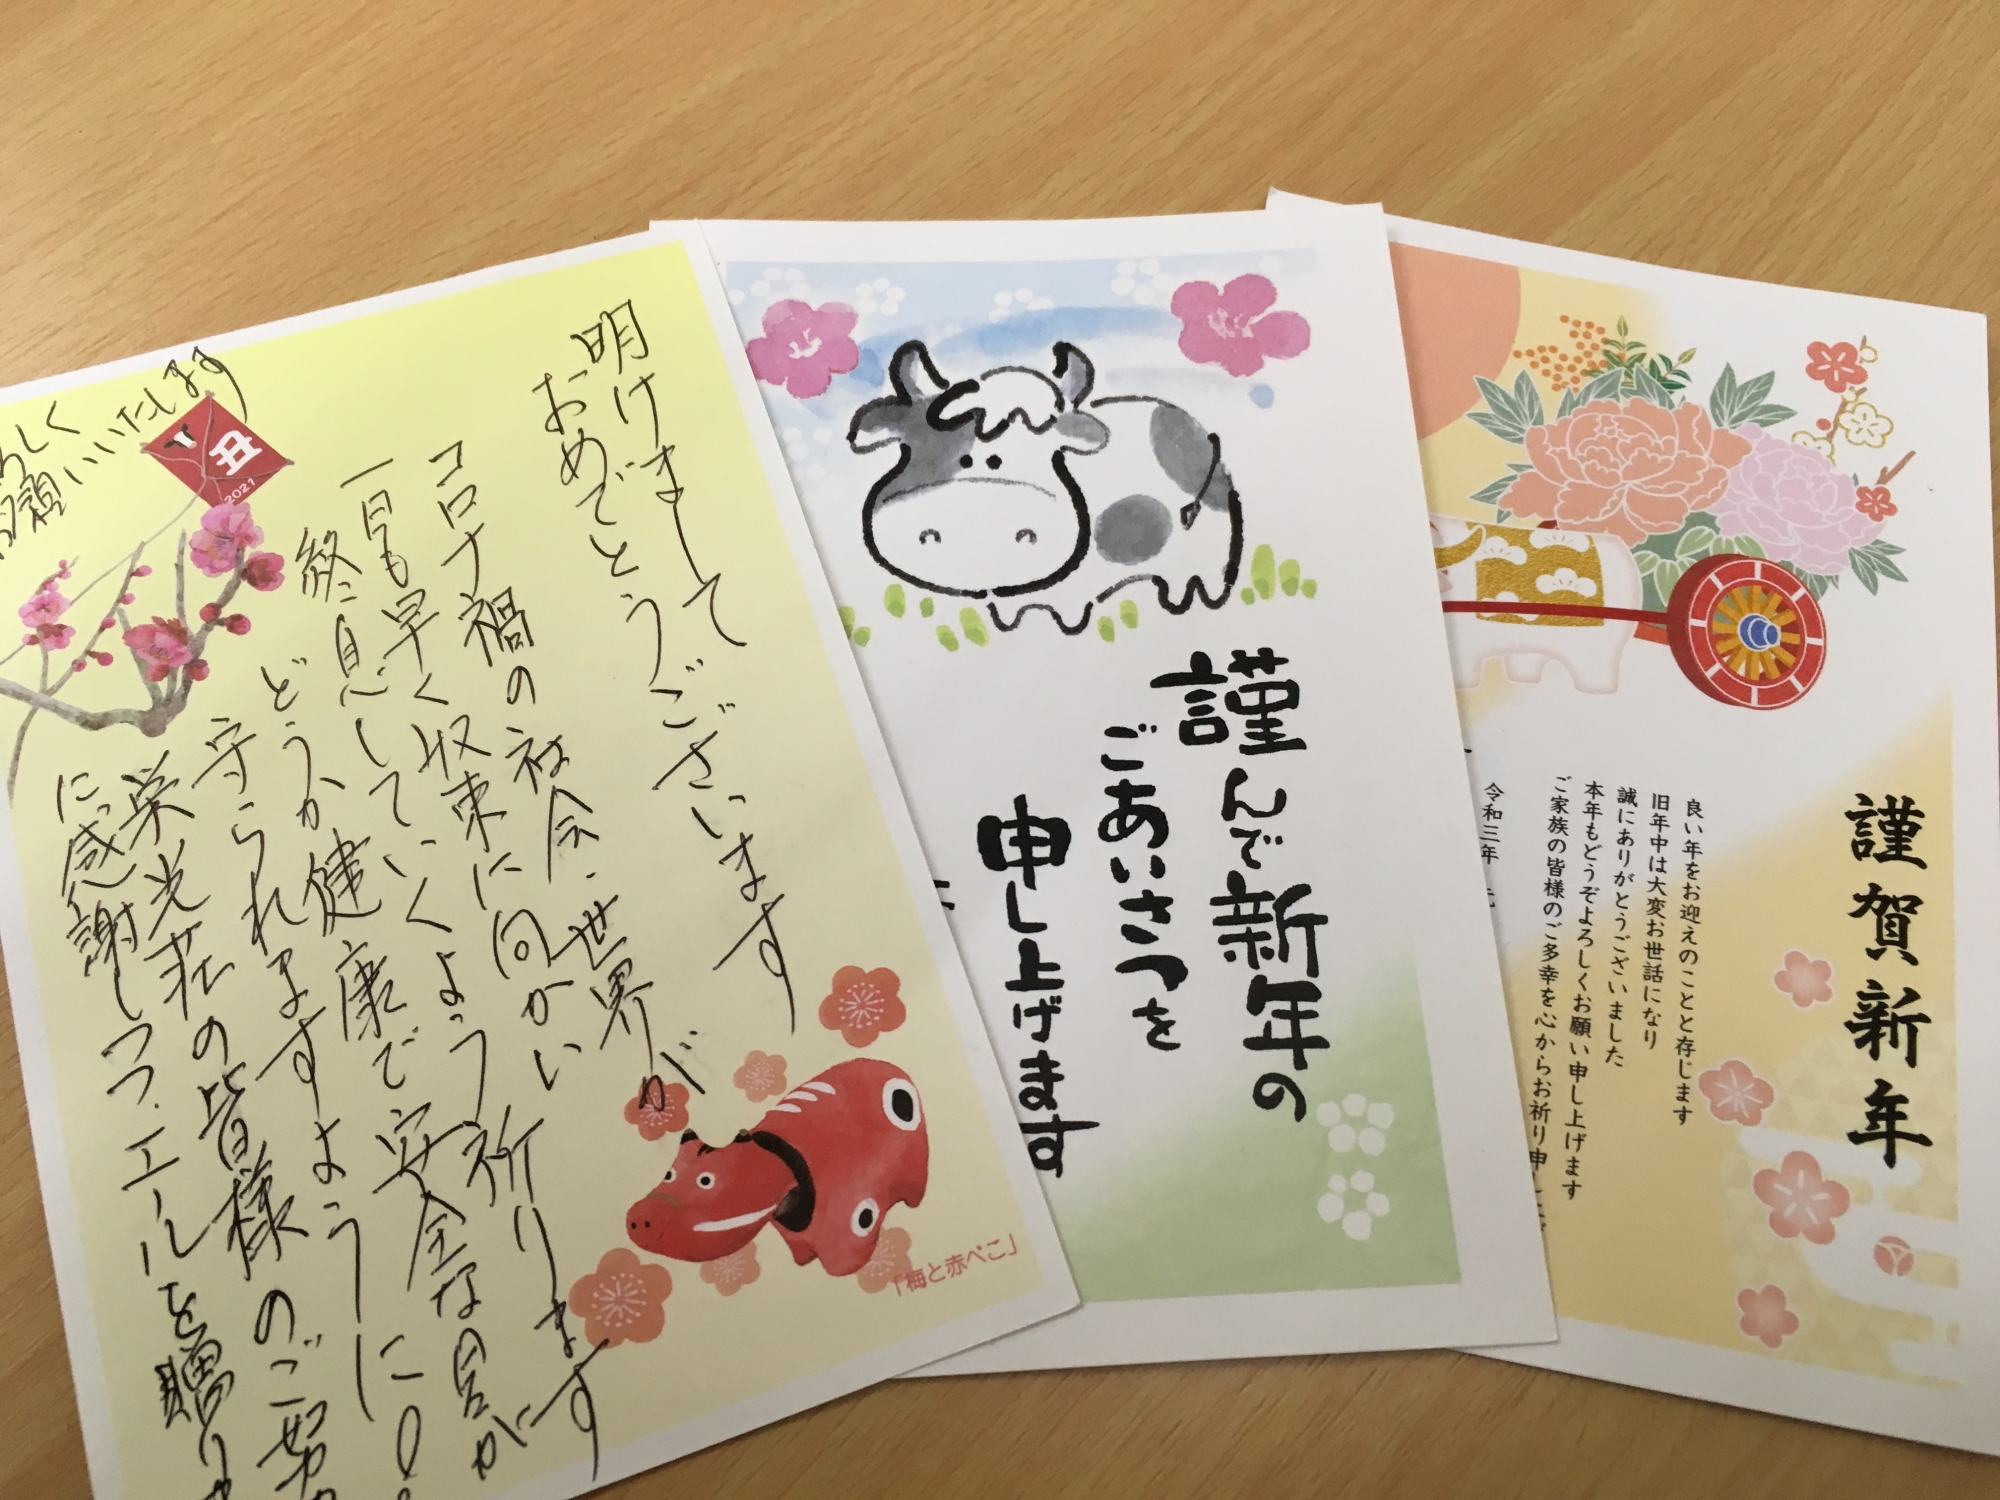 明けまして
おめでとうございます
コロナ禍の社会・世界が
一日も早く収束に向かい
終息していくよう祈ります
どうか健康で安全な日々に
守られますように!
栄光荘の皆様のご努力
に感謝しつつ、エールを贈りま
ろしく
お願いいたします
丑
2021
「梅と赤べこ」
謹んで新年の
ごあいさつを
申し上げます
謹賀新年
良い年をお迎えのことと存じます
旧年中は大変お世話になり
誠にありがとうございました
本年もどうぞよろしくお願い申し上げます
ご家族の皆様のご多幸を心からお祈り申し
令和三年 元